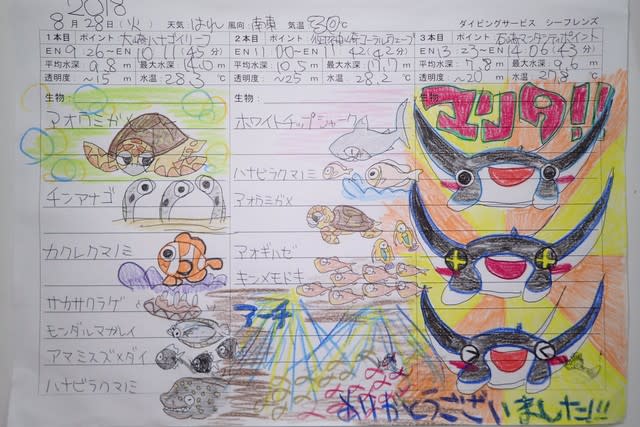 2018
8月28日(火) 天気 はれ 風向 南東 気温 30℃ ダイビングサービス シーフレンズ
1本目 ポイント 大崎ハナゴイリーフ
EN 9:26～10:11(45分)
平均水深 9.8m 最大水深 14.0m
透明度 ～15m 水温 28.3℃
生物:
アオウミガメ
チンアナゴ
カクレクマノミ
サカサクラゲ
モンダルマガレイ
アマミスズメダイ
ハナビラクマノミ
2本目 ポイント
EN 11:00～11:42(42分)
平均水深 10.5m 最大水深 17.7m
透明度 ～25m 水温 28.2℃
生物:
ホワイトチップシャーク
ハナビラクマノミ
アオウミガメ
アオギハゼ
キンメモドキ
アーチ
3本目 ポイント 石崎マンタシティポイント
EN 13:23～14:06(43分)
平均水深 7.7m 最大水深 9.6m
透明度 ～20m 水温 27.8℃
生物:
マンタ!!
ありがとうございました!!!